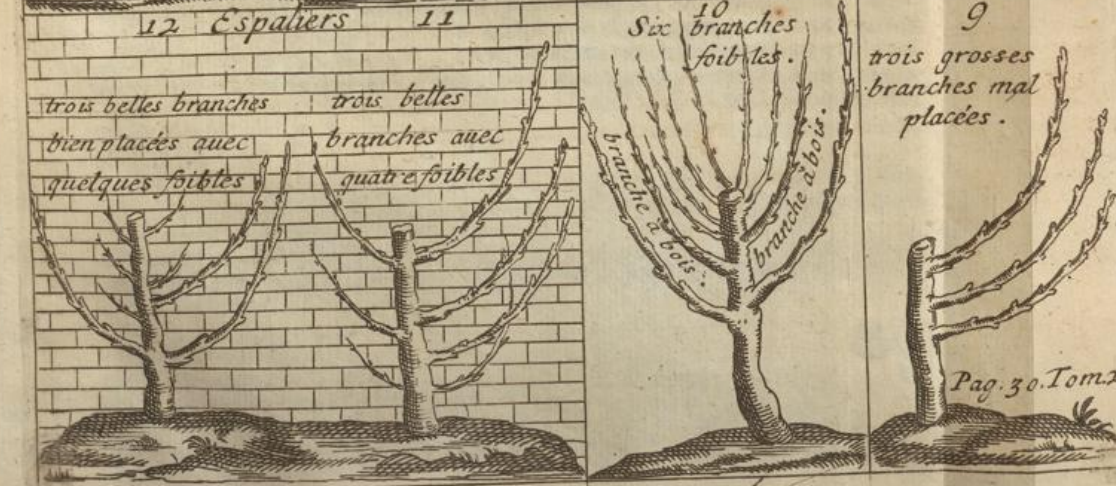 12 Espaliers 11
trois belles branches
bien placées avec
quelques foibles
trois belles
branches avec
quatre foibles
10
Six branches
foibles.
branche à bois.
branche à bois.
9
trois grosses
branches mal
placées.
Pag. 30. Tom.